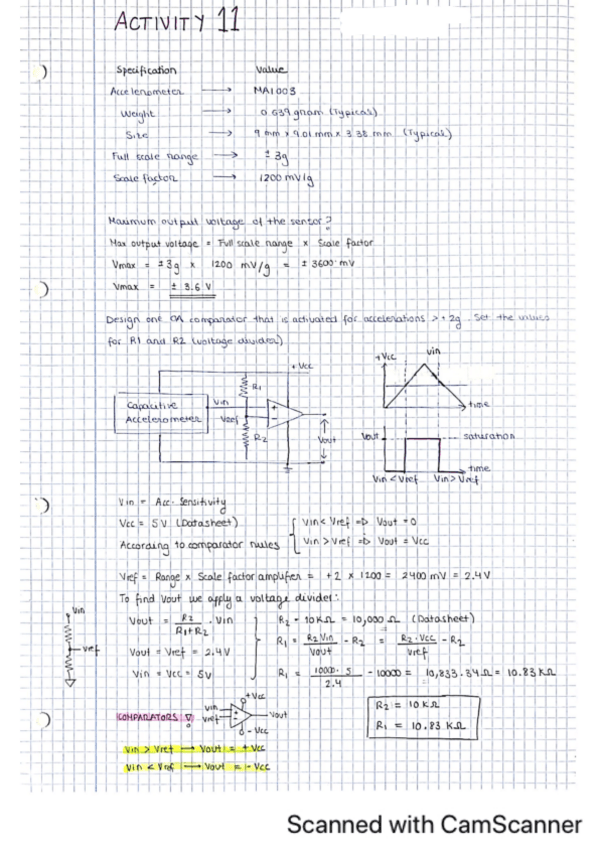 ACTIVITY 11
Specification Value
Accelerometer → MA1003
Weight → 0.639 gram (Typical)
Size → 9 mm x 9.01 mm x 3.38 mm (Typical)
Full scale range → ± 3g
Scale factor → 1200 mV/g
Maximum output voltage of the sensor?
Max output voltage = Full scale range x Scale factor
Vmax = ±3g x 1200 mV/g = ± 3600 mV
Vmax = ± 3.6 V
Design one comparator that is activated for accelerations > + 2g. Set the values
for R1 and R2 (voltage divider)
+ Vcc
R1
Capacitive
Accelerometer
Vin
Vref
+
-
R2
Vout
+Vcc
Vin
time
Vout
saturation
time
Vin < Vref Vin > Vref
Vin = Acc. Sensitivity
Vcc = 5V (Datasheet)
According to comparator rules
Vin < Vref => Vout = 0
Vin > Vref => Vout = Vcc
Vref = Range x Scale factor amplifier = +2 x 1200 = 2400 mV = 2.4V
To find Vout we apply a voltage divider:
Vin
Vref
Vout = R2 / R1+R2 . Vin
Vout = Vref = 2.4V
Vin = Vcc = 5V
R2 = 10KΩ = 10,000 Ω (Datasheet)
R1 = R2 Vin / Vout - R2 = R2 . Vcc / Vref - R2
R1 = 10000 . 5 / 2.4 - 10000 = 10,833.34 Ω = 10.83 KΩ
COMPARATORS
+ Vcc
Vin
Vref
Vout
- Vcc
R2 = 10 KΩ
R1 = 10.83 KΩ
Vin > Vref → Vout = + Vcc
Vin < Vref → Vout = - Vcc
Scanned with CamScanner